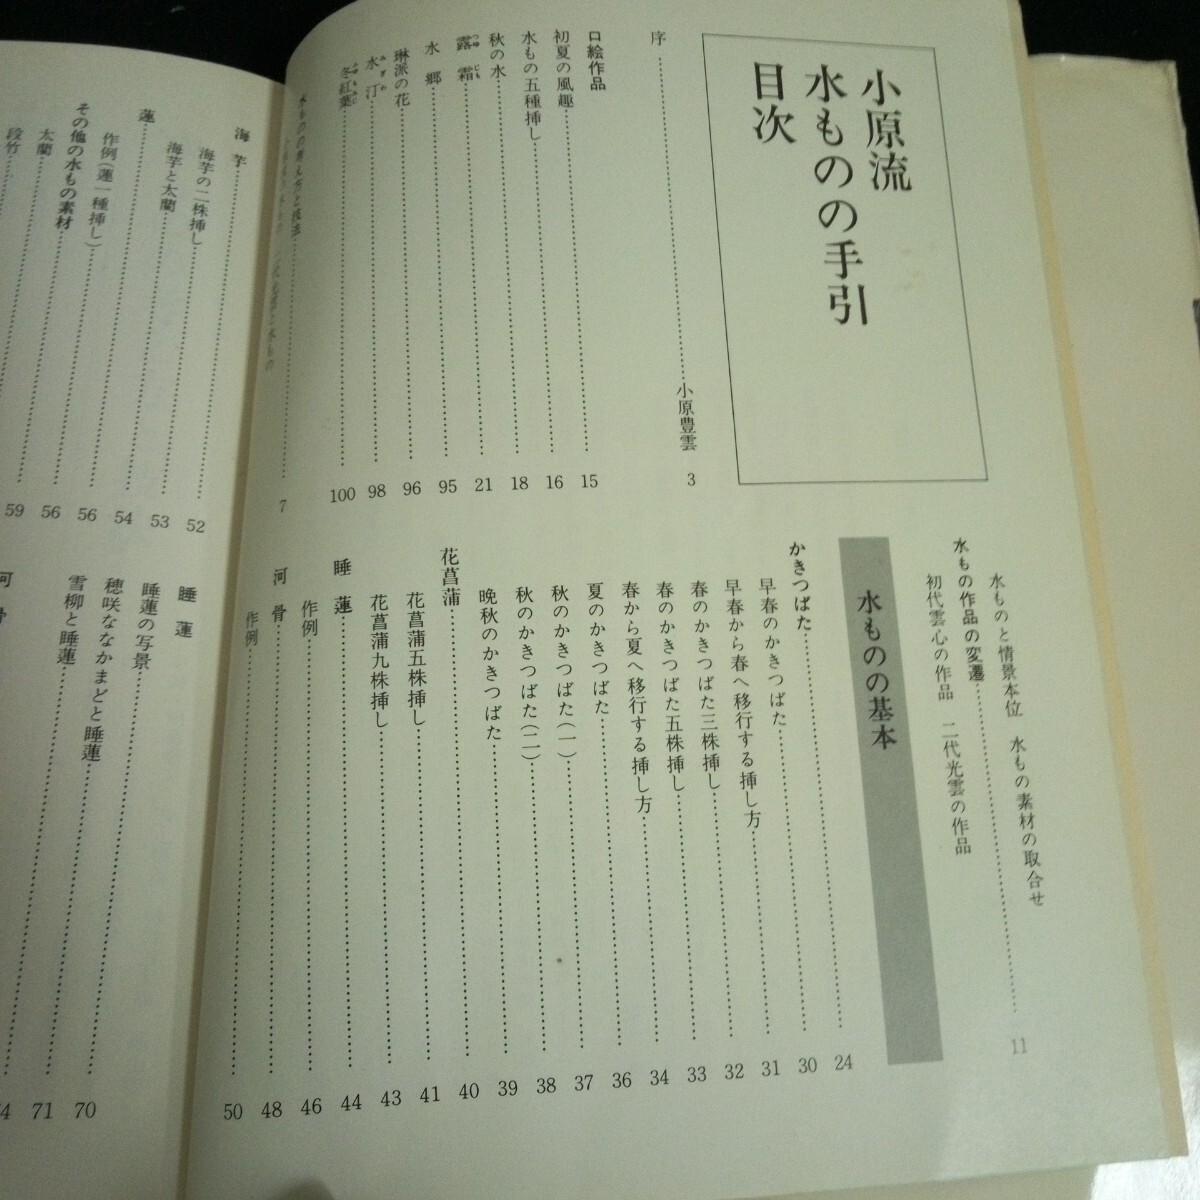 小原流
水ものの手引
目次
序 小原豊雲 3
口絵作品
初夏の風趣 15
水もの五種挿し 16
秋の水 18
露霜 21
水郷 95
琳派の花 96
水汀 98
冬紅葉 100
水ものの考え方と技法 7
水ものと情景本位 水もの素材の取合せ
水もの作品の変遷 11
初代雲心の作品 二代光雲の作品
水ものの基本
かきつばた 24
早春のかきつばた 30
早春から春へ移行する挿し方 31
春のかきつばた三株挿し 32
春のかきつばた五株挿し 33
春から夏へ移行する挿し方 34
夏のかきつばた 36
秋のかきつばた(一) 37
秋のかきつばた(二) 38
晩秋のかきつばた 39
花菖蒲 40
花菖蒲五株挿し 41
花菖蒲九株挿し 43
睡蓮 44
作例 46
河骨 48
作例 50
海芋
海芋の二株挿し 52
海芋と太藺 53
蓮 54
作例(蓮一種挿し) 56
その他の水もの素材 56
太藺
段竹 59
睡蓮
睡蓮の写景
穂咲ななかまどと睡蓮 70
雪柳と睡蓮 71
河骨